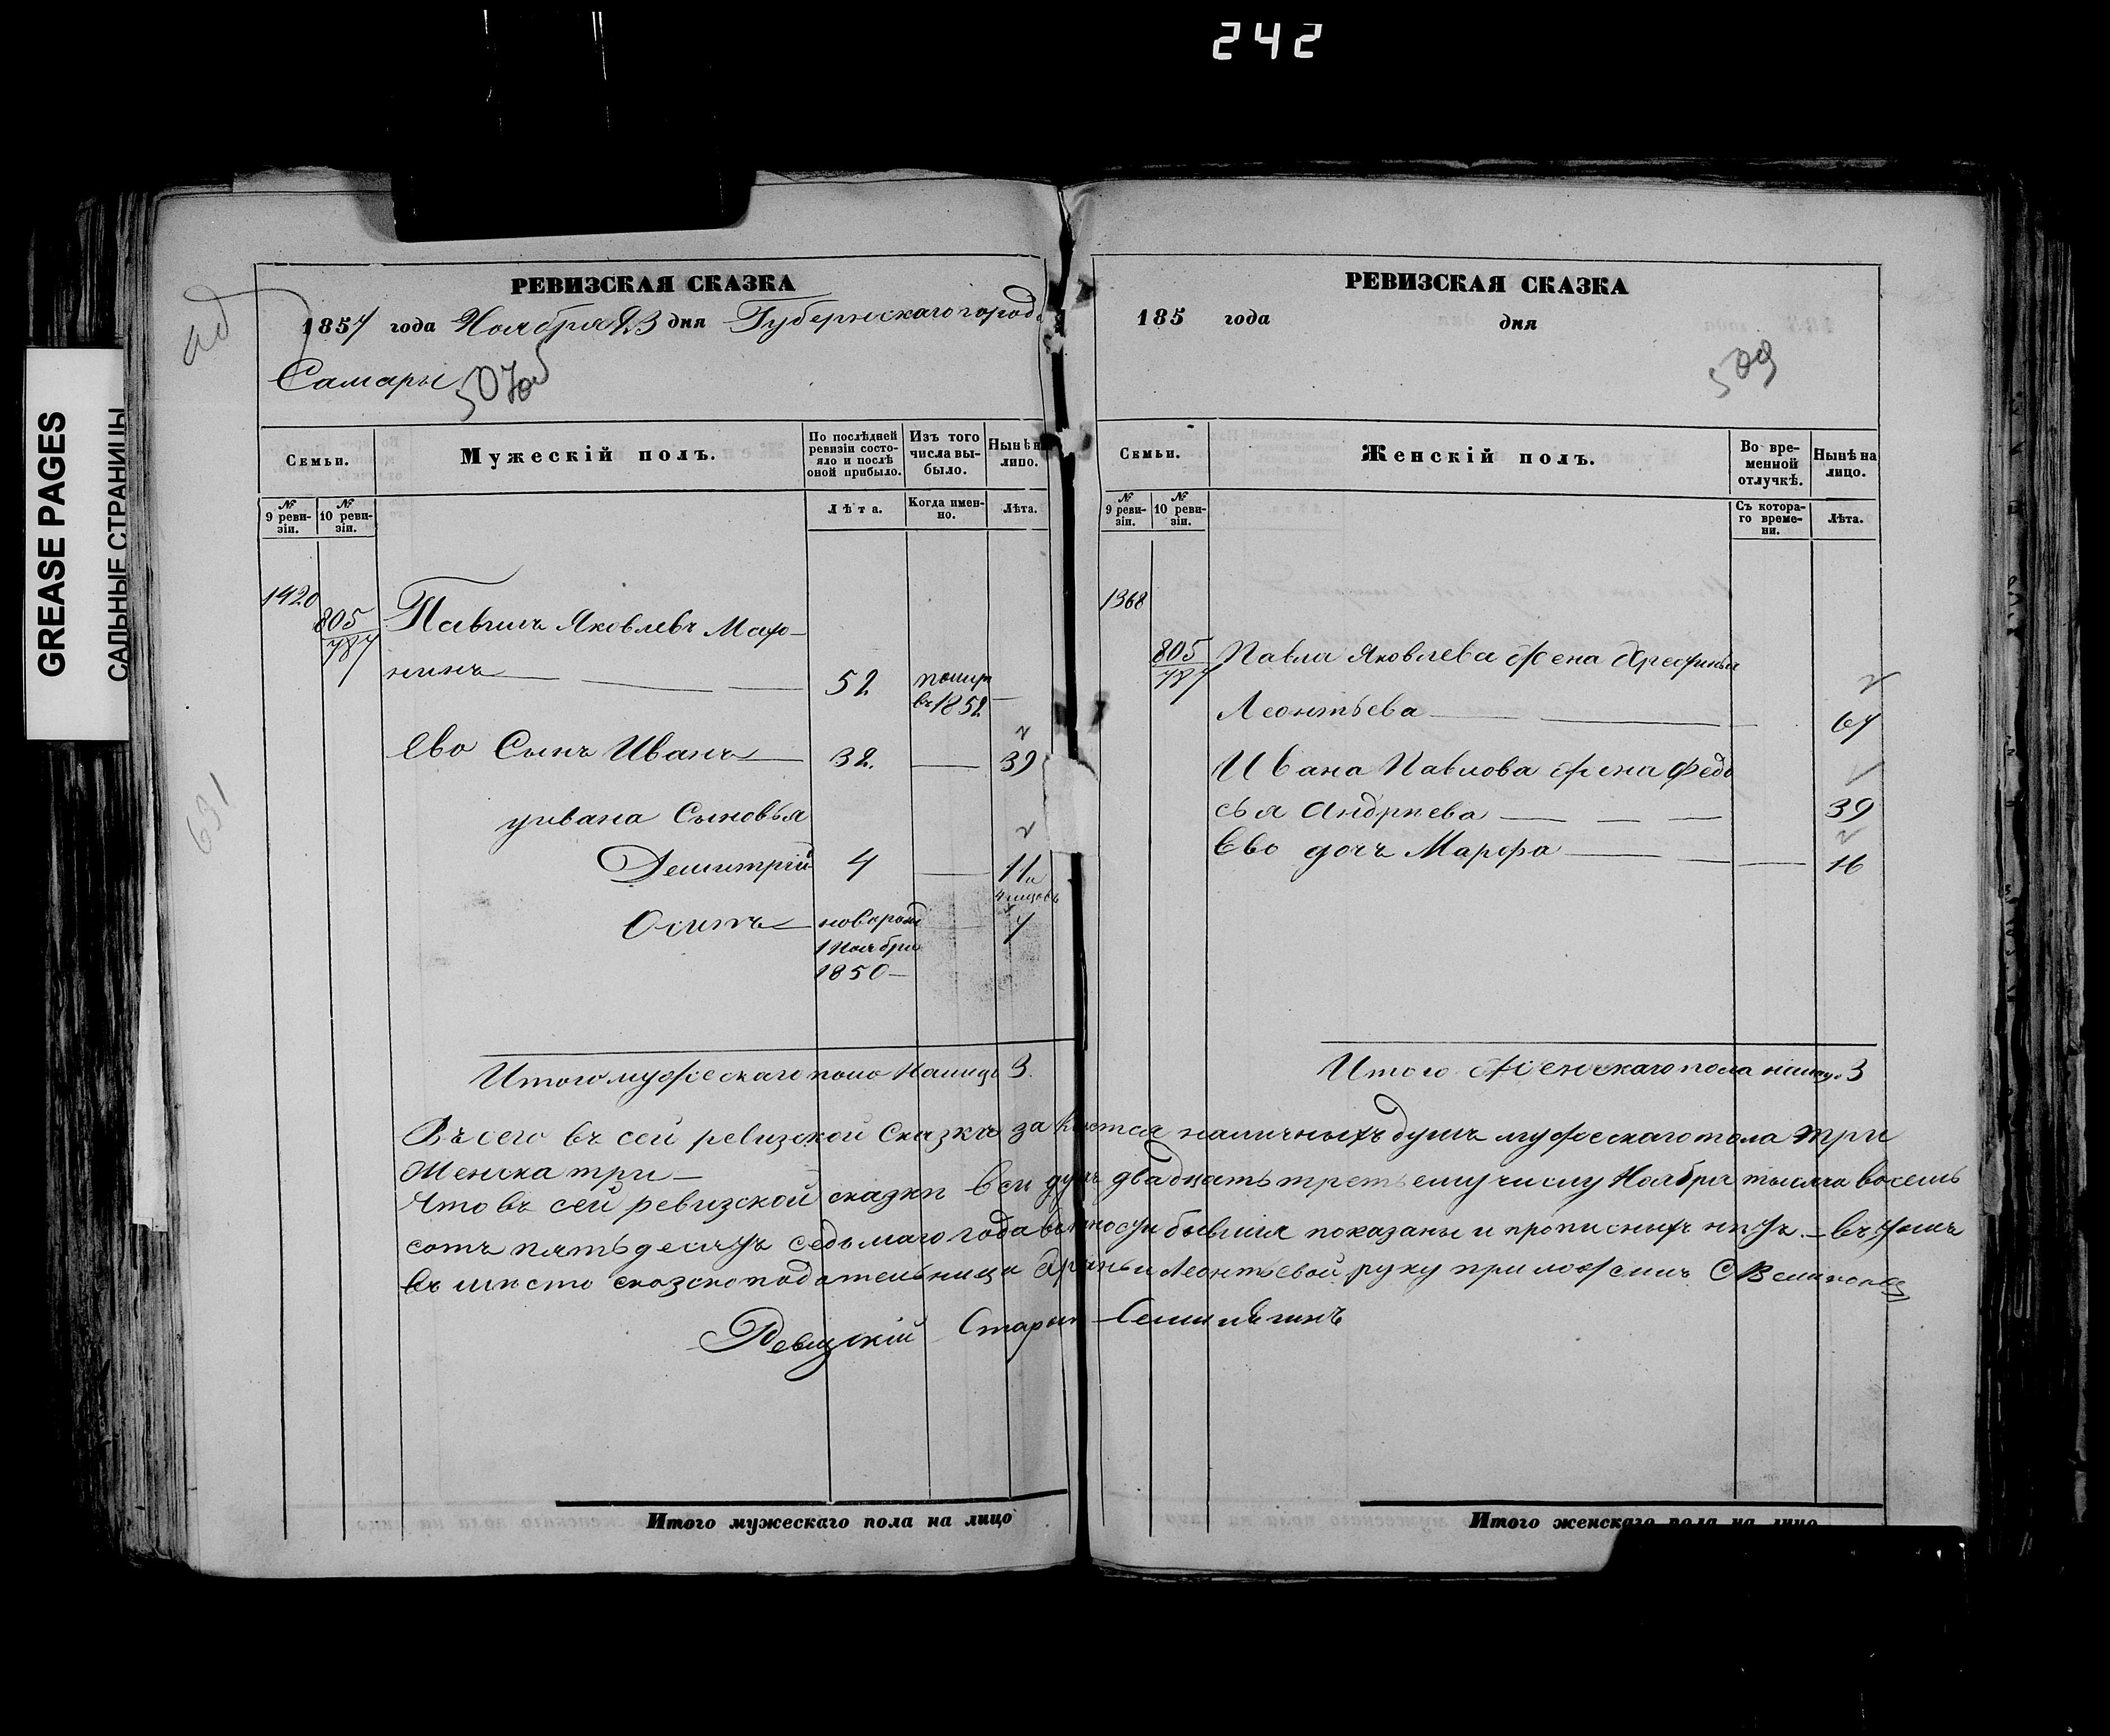 242
GREASE PAGES
САЛЬНЫЕ СТРАНИЦЫ
РЕВИЗСКАЯ СКАЗКА
1857 года Ноября 23 дня Губернскаго города
Самары
Семьи.
Мужескій полъ.
По послѣдней ревизіи состояло и послѣ оной прибыло.
Изъ того числа выбыло.
Нынѣ на лицо.
№ 9 ревизіи.
№ 10 ревизіи.
Лѣта.
Когда именно.
Лѣта.
1420
805
787
Павилъ Яковлевъ Мафо-
нинъ 52 помир въ 1852 —
Ево Сынъ Иванъ 32. — 39
уивана Сыновья
Демитрій 4 — 11
Осипъ новорожд — 7
1 Ноября
1850 —
Итого мужескаго пола налицо 3.
631
РЕВИЗСКАЯ СКАЗКА
185 года дня
509
Семьи.
Женскій полъ.
Во временной отлучкѣ.
Нынѣ на лицо.
№ 9 ревизіи.
№ 10 ревизіи.
Съ котораго времени.
Лѣта.
1368
805
787
Павла Яковлева жена
Леонтьева — 67
Ивана Павлова жена Федо
сья Андриева 39
Ево дочь Марфа — 16
Итого женскаго пола налицо 3
Въсего въ сей ревизской Сказкѣ наличныхъ душъ мужескаго пола три
Женска три —
Что въ сей ревизской сказки вси душъ двадцать третьему числу Ноября тысяча восемь
сотъ пятьдесятъ седьмаго года бывшия показаны и прописныхъ нѣтъ. — въ томъ
въ мѣсто сказкоподательница Леонтьевой руку приложилъ
Ревизскій Старый
Итого мужескаго пола на лицо
Итого женскаго пола на лицо